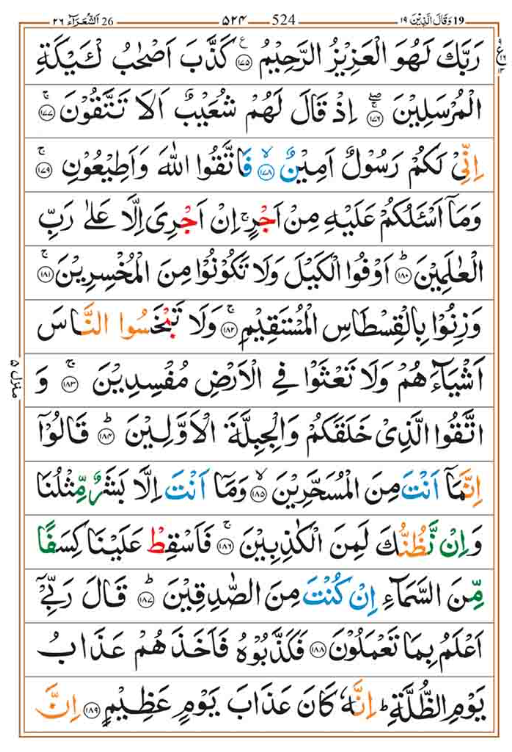 ٢٦ اَلشُّعَرَآء 26 ٥٢٤ 524 وَقَالَ الَّذِيْنَ ١٩ 19
رَبَّكَ لَهُوَ الْعَزِيْزُ الرَّحِيْمُ ۝١٧٥ كَذَّبَ اَصْحٰبُ لْـَٔيْكَةِ
الْمُرْسَلِيْنَ ۝١٧٦ اِذْ قَالَ لَهُمْ شُعَيْبٌ اَلَا تَتَّقُوْنَ ۝١٧٧
اِنِّىْ لَكُمْ رَسُوْلٌ اَمِيْنٌ ۝١٧٨ فَاتَّقُوا اللّٰهَ وَاَطِيْعُوْنِ ۝١٧٩
وَمَاۤ اَسْـَٔلُكُمْ عَلَيْهِ مِنْ اَجْرٍ اِنْ اَجْرِىَ اِلَّا عَلٰى رَبِّ
الْعٰلَمِيْنَ ۝١٨٠ اَوْفُوا الْكَيْلَ وَلَا تَكُوْنُوْا مِنَ الْمُخْسِرِيْنَ ۝١٨١
وَزِنُوْا بِالْقِسْطَاسِ الْمُسْتَقِيْمِ ۝١٨٢ وَلَا تَبْخَسُوا النَّاسَ
اَشْيَآءَهُمْ وَلَا تَعْثَوْا فِى الْاَرْضِ مُفْسِدِيْنَ ۝١٨٣ وَ
اتَّقُوا الَّذِىْ خَلَقَكُمْ وَالْجِبِلَّةَ الْاَوَّلِيْنَ ۝١٨٤ قَالُوْۤا
اِنَّمَاۤ اَنْتَ مِنَ الْمُسَحَّرِيْنَ ۝١٨٥ وَمَاۤ اَنْتَ اِلَّا بَشَرٌ مِّثْلُنَا
وَاِنْ نَّظُنُّكَ لَمِنَ الْكٰذِبِيْنَ ۝١٨٦ فَاَسْقِطْ عَلَيْنَا كِسَفًا
مِّنَ السَّمَآءِ اِنْ كُنْتَ مِنَ الصّٰدِقِيْنَ ۝١٨٧ قَالَ رَبِّىْۤ
اَعْلَمُ بِمَا تَعْمَلُوْنَ ۝١٨٨ فَكَذَّبُوْهُ فَاَخَذَهُمْ عَذَابُ
يَوْمِ الظُّلَّةِ ؕ اِنَّهٗ كَانَ عَذَابَ يَوْمٍ عَظِيْمٍ ۝١٨٩ اِنَّ
منزل ٥